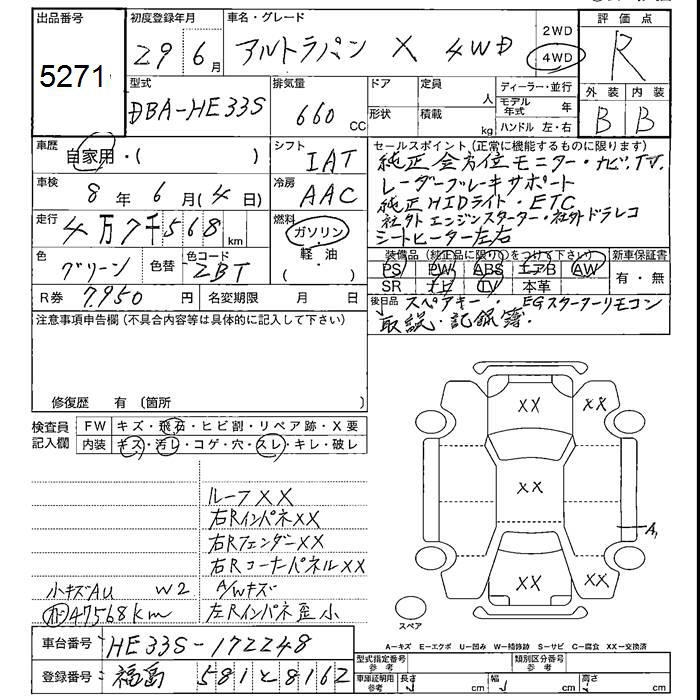 出品番号
5271
初度登録年月
29 6月
車名・グレード
アルトラパン X 4WD
2WD
4WD
評価点
R
外装 内装
B B
型式
DBA-HE33S
排気量
660 CC
ドア
定員 人
形状
積載 kg
ディーラー・並行
モデル年式 年
ハンドル 左・右
車歴
自家用・( )
シフト
IAT
車検
8年 6月(4日)
冷房
AAC
走行
4万7千568 km
燃料
ガソリン
軽・油
( )
色
グリーン
色替
色コード
ZBT
R券 7,950 円
名変期限 月 日
セールスポイント(正常に機能するものに限ります)
純正全方位モニター・ナビ.TV.
レーダーブレーキサポート
純正HIDライト・ETC
社外エンジンスターター・社外ドラレコ
シートヒーター左右
装備品(純正品に限り○をつけて下さい)
PS PW ABS エアB AW
SR ナビ TV 本革
新車保証書
有・無
後日品 スペアキー・EGスターターリモコン
取説・記録簿.
注意事項申告欄(不具合内容等は具体的に記入して下さい)
修復歴 有 (箇所 )
検査員記入欄
FW キズ・飛石・ヒビ割・リペア跡・X要
内装 キズ・汚レ・コゲ・穴・スレ・キレ・破レ
ルーフXX
右RインパネXX
右RフェンダーXX
右RコーナーパネルXX
小キズAU W2
A/Wキズ
47568km
左Rインパネ歪小
XX
XX
XX
XX
XX
A1
スペア
A-キズ E-エクボ U-凹み W-補修跡 S-サビ C-腐食 XX-交換済
車台番号 HE33S-172248
登録番号 福島 581 と 8162
型式指定番号 参考
類別区分番号 参考
車庫証明用 参考
長さ cm
幅 cm
高さ cm